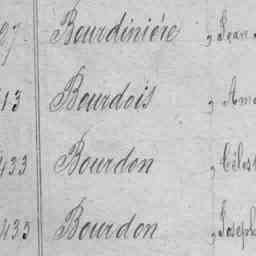 Bourdinière , Jean
413 Bourdois , Am
433 Bourdon , Célest
433 Bourdon , Joseph